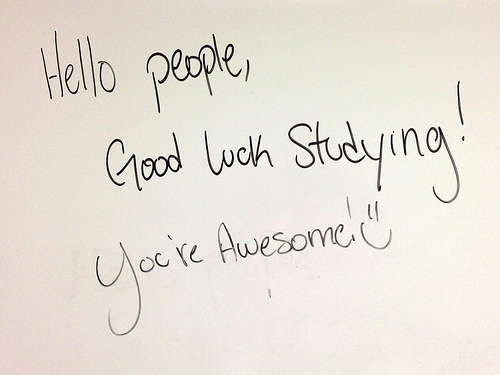 Hello people,
Good luck Studying!
You're Awesome! :)